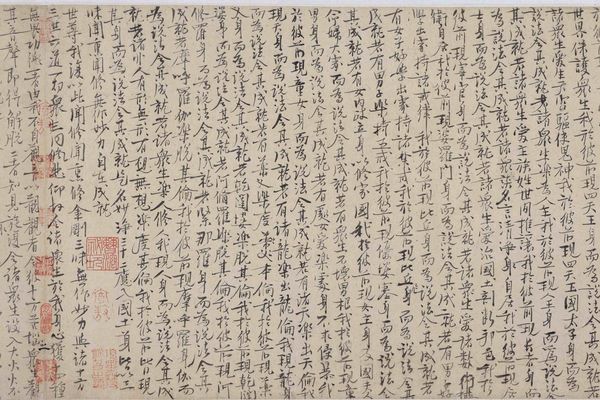 世界保護眾生我於彼前現四天王身而為說法令其成就若
諸眾生愛生天宮驅使鬼神我於彼前現四天王國太子身而為
說法令其成就若諸眾生樂為人王我於彼前現人王身而為說法
令其成就若諸眾生愛主族姓世間推讓我於彼前現長者身而
為說法令其成就若諸眾生愛談名言清淨自居我於彼前現居
士身而為說法令其成就若諸眾生愛治國土剖斷邦邑我於
彼前現宰官身而為說法令其成就若諸眾生愛諸數術攝
衛自居我於彼前現婆羅門身而為說法令其成就若有男子好
學出家持諸戒律我於彼前現比丘身而為說法令其成就若
有女子好學出家持諸禁戒我於彼前現比丘尼身而為說法令
其成就若有男子樂持五戒我於彼前現優婆塞身而為說法令其成
就若有女人內政立身以修家國我於彼前現女主身及國夫人
命婦大家而為說法令其成就若有眾生不壞男根我於彼前現童
男身而為說法令其成就若有處女愛樂處身不求侵暴我
於彼前現童女身而為說法令其成就若有諸天樂出天倫我
現天身而為說法令其成就若有諸龍樂出龍倫我現龍身
而為說法令其成就若有藥叉樂度本倫我於彼前現藥
叉身而為說法令其成就若乾闥婆樂脫其倫我於彼前現乾闥婆
身而為說法令其成就若阿修羅樂脫其倫我於彼前現阿
修羅身而為說法令其成就若緊那羅身而為說法令其
成就若摩呼羅伽樂脫其倫我於彼前現摩呼羅伽身而
為說法令其成就若諸眾生樂人修人我現人身而為說法令其成
就若諸非人有形無形有想無想樂度其倫我於彼前皆現
其身而為說法令其成就是名妙淨三十二應入國土身皆以三
昧聞熏聞修無作妙力自在成就
世尊我復以此聞熏聞修金剛三昧無作妙力與諸十方
三世六道一切眾生同悲仰故令諸眾生於我身心獲十四種
無畏功德一者由我不自觀音以觀觀者令彼十方苦惱眾生觀
其音聲即得解脫二者知見旋復令諸眾生設入大火火不